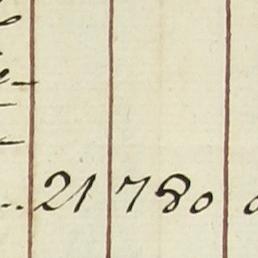 21 780